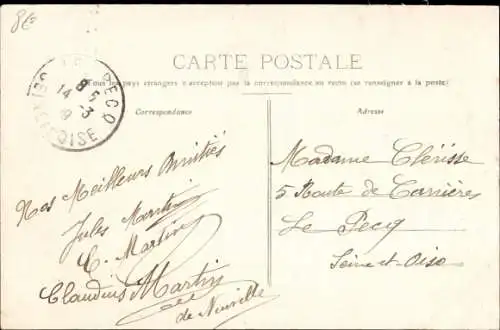 8€
CARTE POSTALE
Tous les pays étrangers n'acceptent pas la correspondance au recto (se renseigner à la poste)
Correspondance
Adresse
LE PECQ
8 5
14 - 3
SEINE-ET-OISE
Nos Meilleurs Amitiés
Jules Martin
C. Martin
Claudius Martin
de Neuville
Madame Clérisse
5 Route de Carrières
Le Pecq
Seine-et-Oise